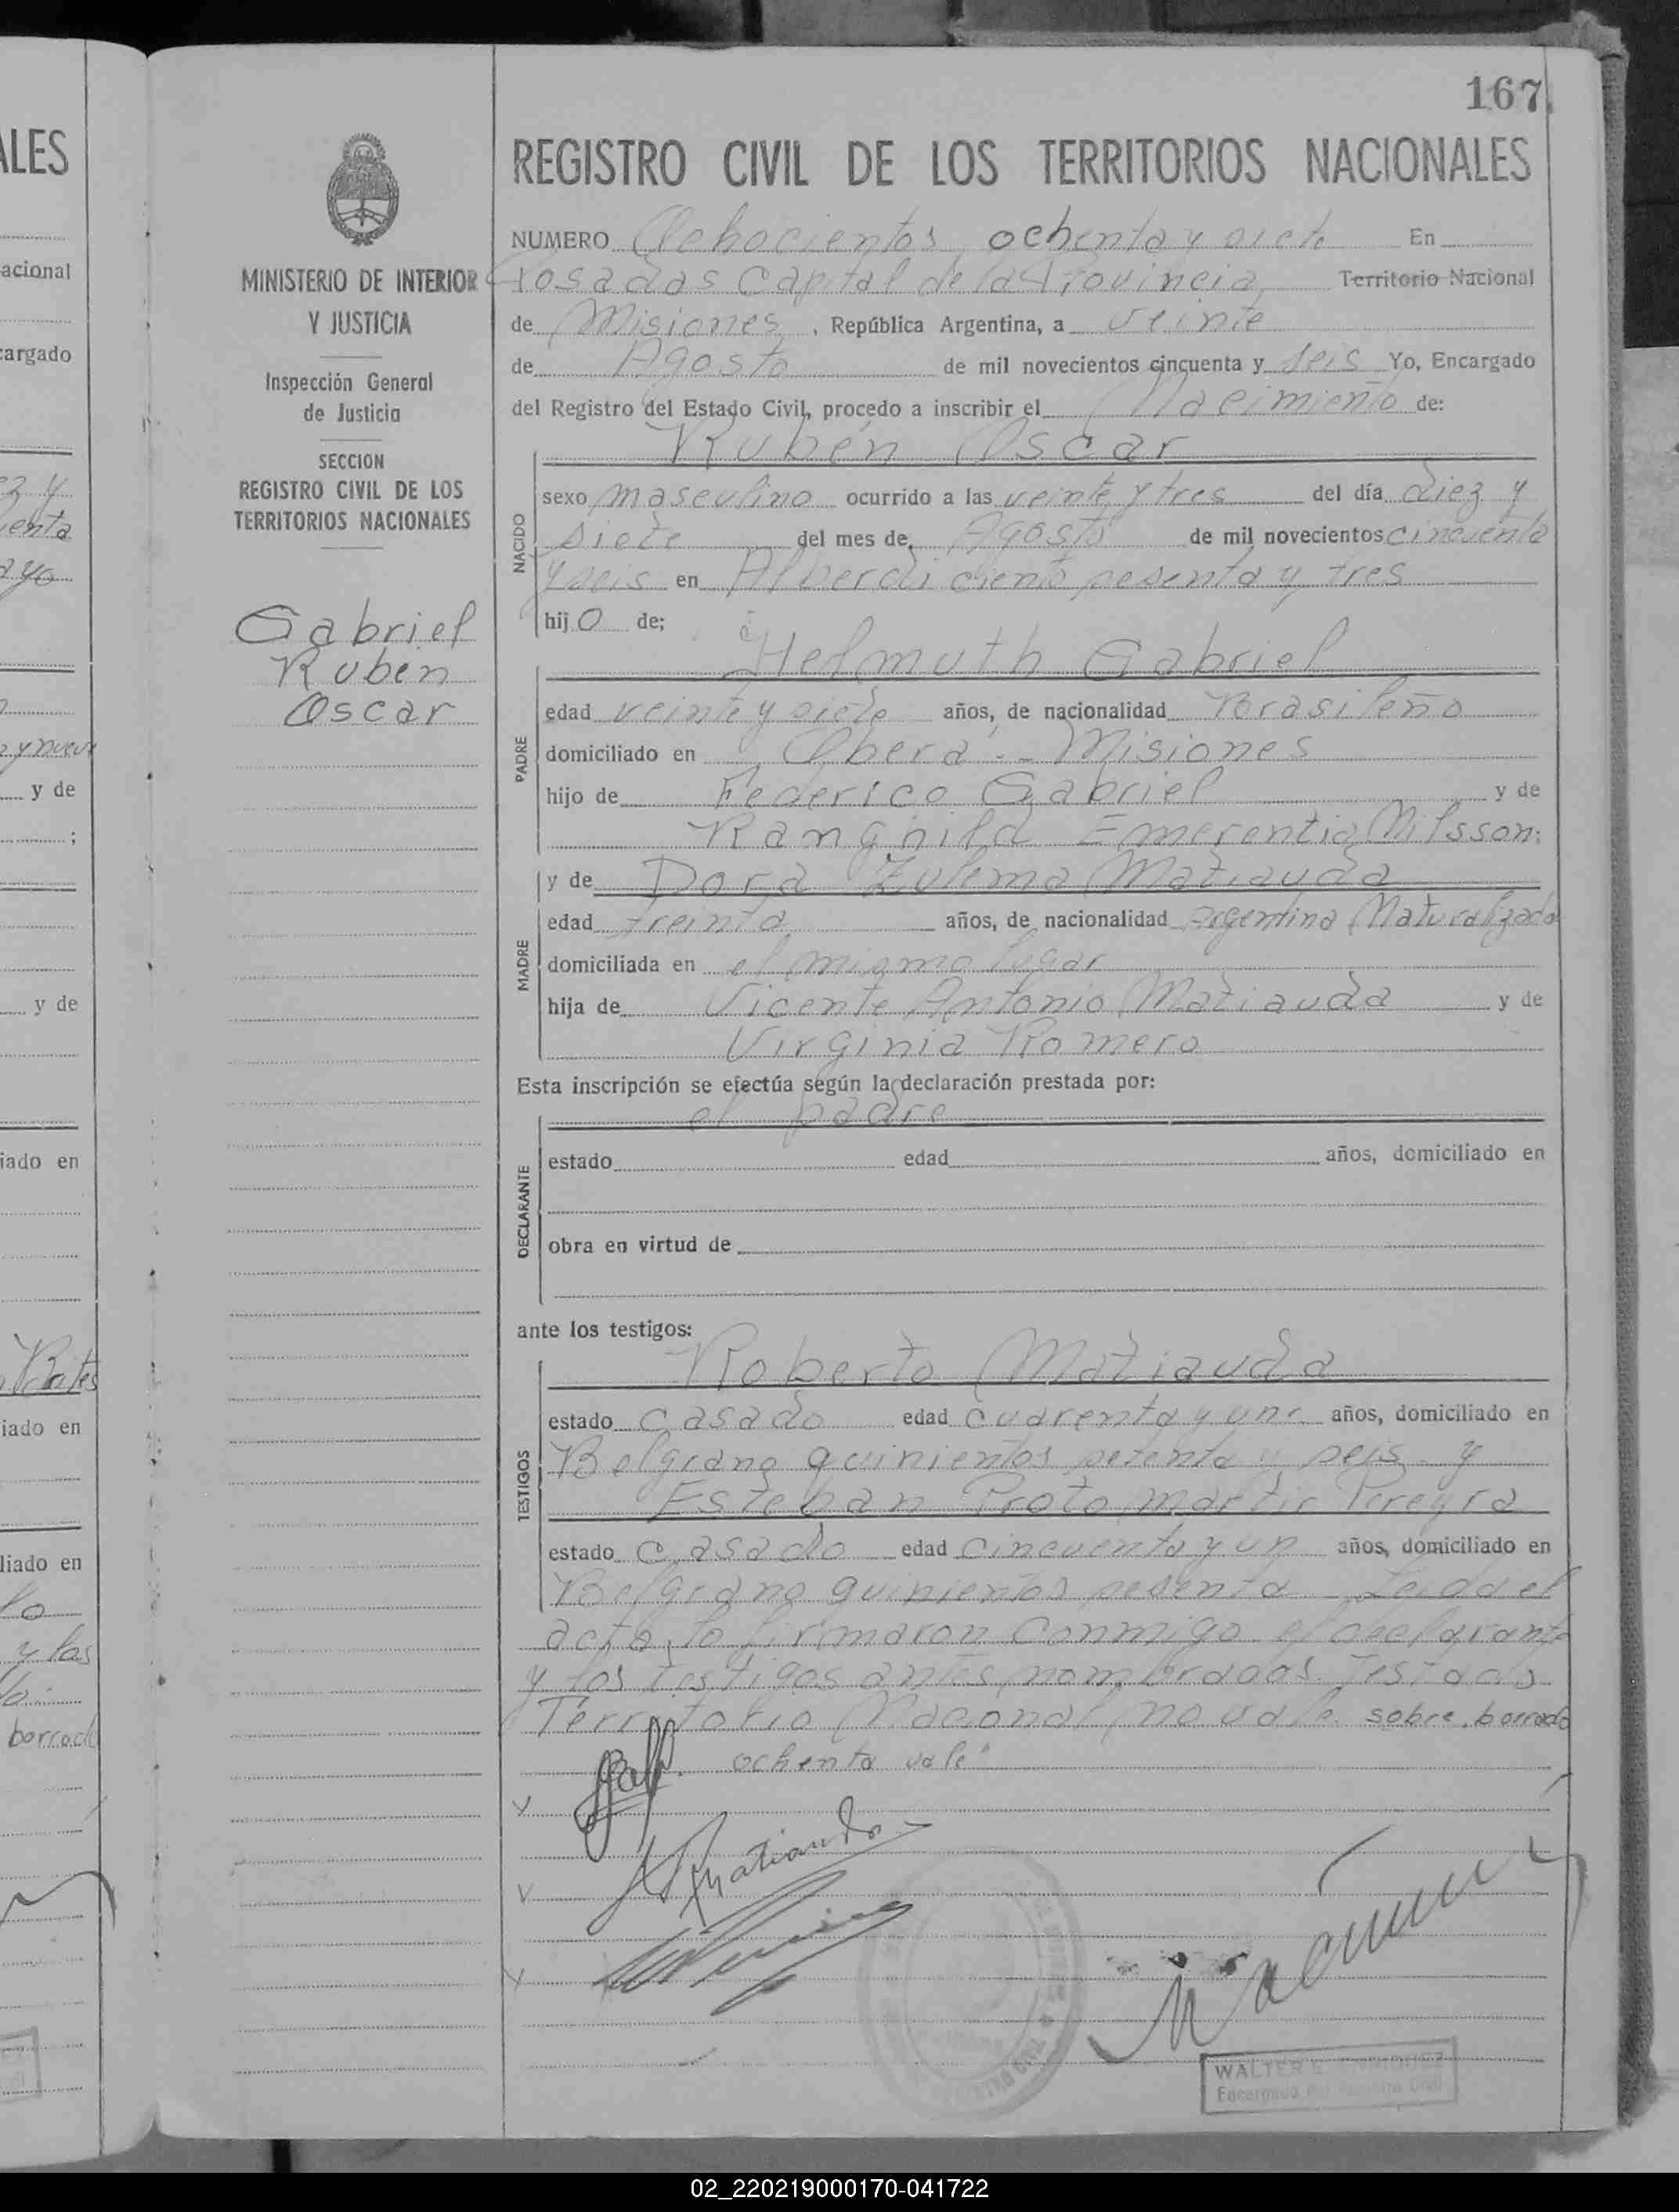 167
ALES
acional
cargado
enta
ayo
y nueve
y de
;
y de
iado en
iado en
liado en
lo
y las
borrado
MINISTERIO DE INTERIOR
Y JUSTICIA
Inspección General
de Justicia
SECCION
REGISTRO CIVIL DE LOS
TERRITORIOS NACIONALES
Gabriel
Ruben
Oscar
REGISTRO CIVIL DE LOS TERRITORIOS NACIONALES
NUMERO Ochocientos ochenta y siete En
Posadas Capital de la Provincia Territorio Nacional
de Misiones, República Argentina, a veinte
de Agosto de mil novecientos cincuenta y seis Yo, Encargado
del Registro del Estado Civil, procedo a inscribir el Nacimiento de:
Rubén Oscar
NACIDO
sexo masculino ocurrido a las veinte y tres del día diez y
siete del mes de Agosto de mil novecientos cincuenta
y seis en Alberdi ciento sesenta y tres
hijo de;
Helmuth Gabriel
PADRE
edad veinte y siete años, de nacionalidad Brasileño
domiciliado en Oberá - Misiones
hijo de Federico Gabriel y de
Ranghild Emerentia Nilsson;
y de Dora Zulema Matiauda
MADRE
edad treinta años, de nacionalidad Argentina Naturalizada
domiciliada en el mismo lugar
hija de Vicente Antonio Matiauda y de
Virginia Romero
Esta inscripción se efectúa según la declaración prestada por:
el padre
DECLARANTE
estado edad años, domiciliado en
obra en virtud de
ante los testigos:
Roberto Matiauda
TESTIGOS
estado casado edad cuarenta y un años, domiciliado en
Belgrano quinientos setenta y seis y
Esteban Proto martir Pereyra
estado casado edad cincuenta y un años, domiciliado en
Belgrano quinientos sesenta Leida el
acta, lo firmaron conmigo el declarante
y los testigos antes nombrados. Testado
Territorio Nacional no vale. sobre borrado
ochenta vale"
Matiauda
WALTER
Encargado del Registro Civil
02_220219000170-041722